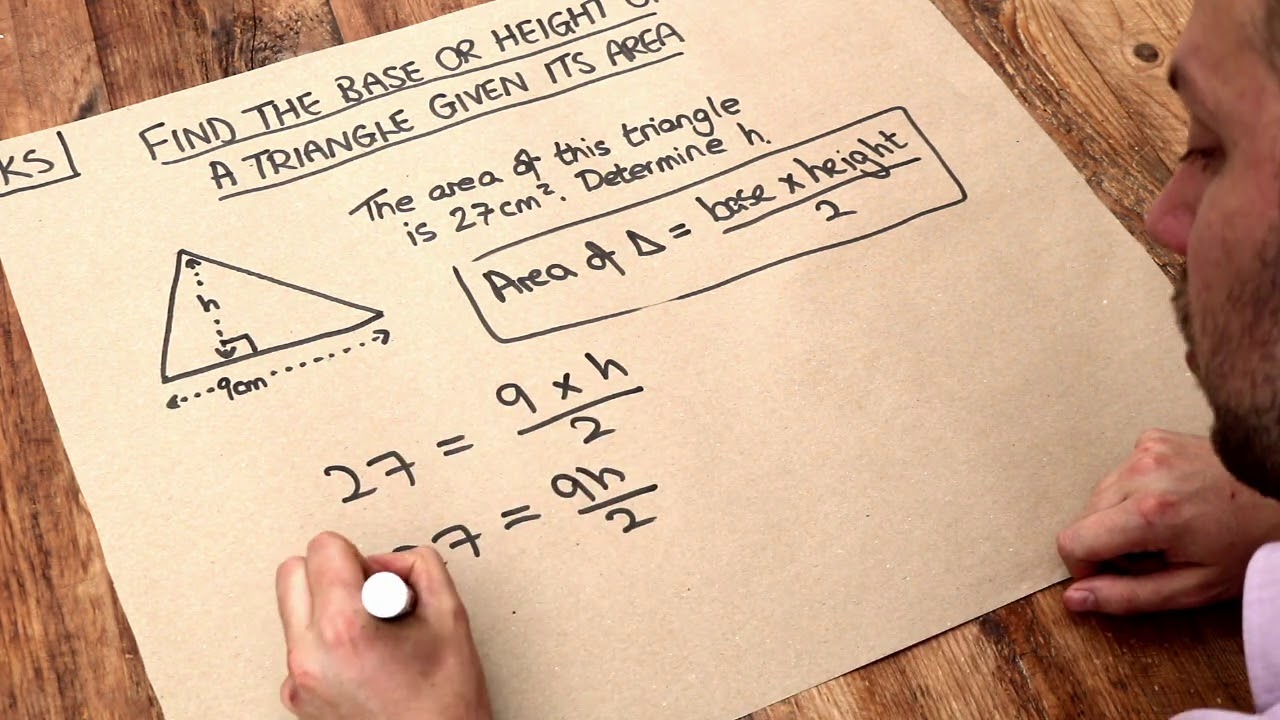 KS
FIND THE BASE OR HEIGHT
A TRIANGLE GIVEN ITS AREA
The area of this triangle
is 27cm². Determine h.
Area of Δ = base x height / 2
h
9cm
27 = 9 x h / 2
7 = 9h / 2